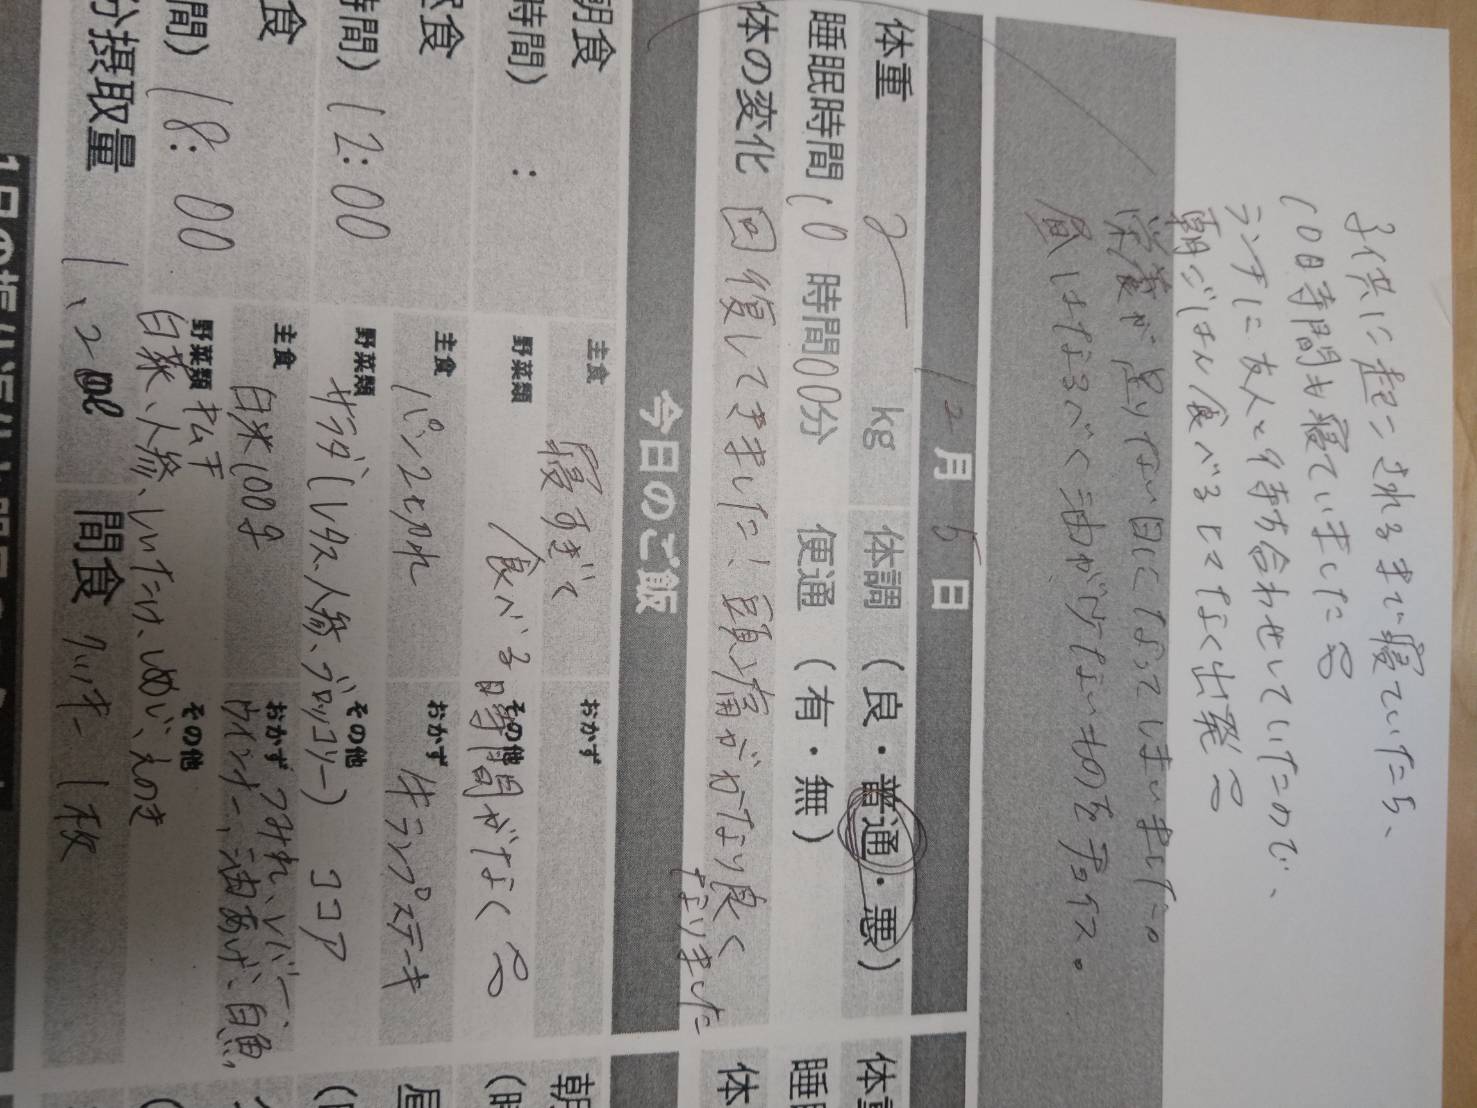 子供に起こされるまで寝ていたら、
10時間も寝ていました
ランチに友人と待ち合わせしていたので、
朝ごはん食べるヒマなく出発
栄養が足りない日になってしまいました。
昼はなるべく油が少ないものをチョイス。
12月5日
体重 kg 体調 (良・普通・悪)
睡眠時間 10時間00分 便通 (有・無)
体の変化 回復してきました!頭痛がかなり良く
なりました
今日のご飯
朝食 主食 おかず
寝すぎて
時間) : 野菜類 その他
食べる時間がなく
食 主食 パン2切れ おかず 牛ランプステーキ
時間) 12:00 野菜類 サラダ(レタス、人参、ブロッコリー) その他 ココア
食 主食 白米100g おかず つみれ、レバー、
ウインナー、油あげ、白魚、
間) 18:00 野菜類 キムチ その他
白菜、人参、しいたけ、しめじ、えのき
分摂取量 1、2 間食 クッキー 1枚
1日の振
体
睡
体
朝
(時
昼
(